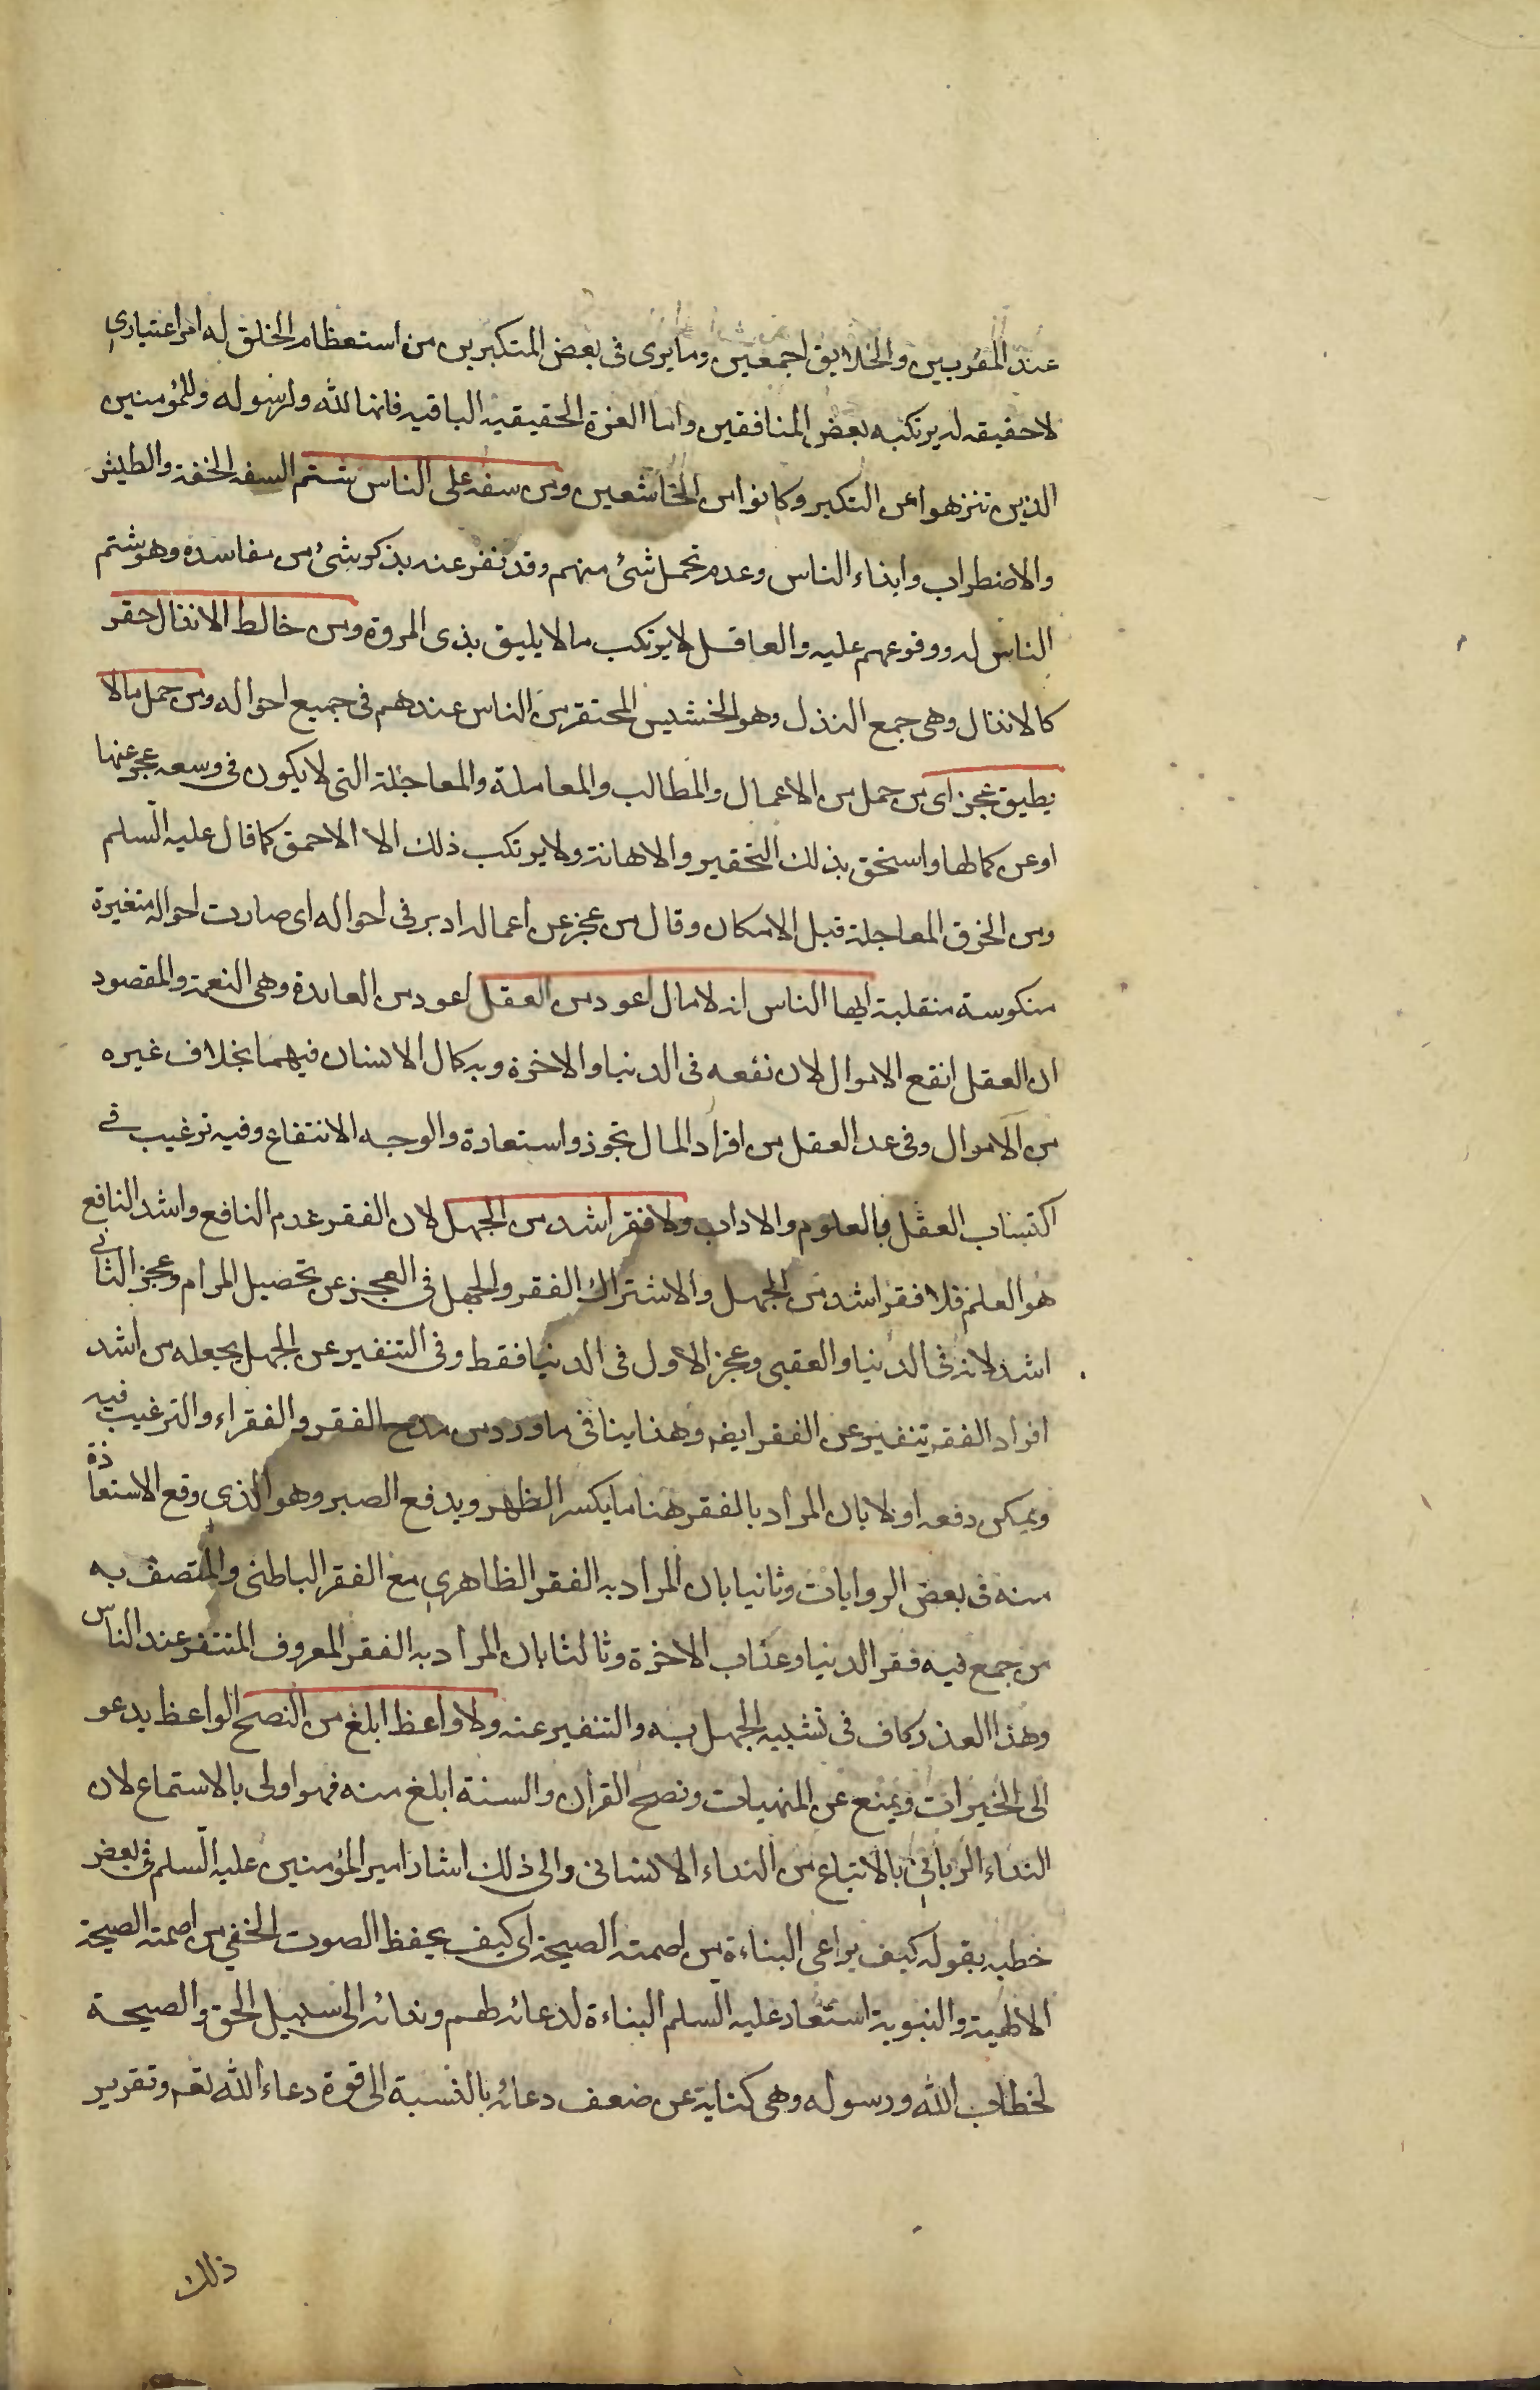 عند المقربين والخلايق اجمعين وما يرى فى بعض المتكبرين من استعظام الخلق له امر اعتبارى
لا حقيقه له يرتكبه بعض المنافقين واما العزة الحقيقيه الباقيه فانها لله ولرسوله وللمؤمنين
الذين تنزهوا عن التكبر وكانوا من الخاشعين ومن سفه على الناس شتم السفه الخفة والطيش
والاضطراب وايذاء الناس وعدم تحمل شئ منهم وقد نفر عنه بذكر شئ من مفاسده وهو شتم
الناس له ووقوعهم عليه والعاقل لا يرتكب ما لا يليق بذى المروة ومن خالط الانذال حقر
كالانذال وهى جمع النذل وهو الخسيس المحتقر من الناس عندهم فى جميع احواله ومن حمل ما لا
يطيق عجز اى من حمل من الاعمال والمطالب والمعاملة والمعاجلة التى لا يكون فى وسعه عجز عنها
او عن كمالها واستحق بذلك التحقير والاهانة ولا يرتكب ذلك الا الاحمق كما قال عليه السلم
ومن الخرق المعاجلة قبل الامكان وقال من عجز عن اعماله ادبر فى احواله اى صارت احواله متغيرة
منكوسة منقلبة ايها الناس انه لا مال اعود من العقل اعود من العايدة وهى النعمة والمقصود
ان العقل انفع الاموال لان نفعه فى الدنيا والاخرة وبه كمال الانسان فيهما بخلاف غيره
من الاموال وفى عد العقل من افراد المال تجوز واستعارة والوجه الانتفاع وفيه ترغيب فى
اكتساب العقل بالعلوم والاداب ولا فقر اشد من الجهل لان الفقر عدم النافع واشد النافع
هو العلم فلا فقر اشد من الجهل والاشتراك الفقر والجهل فى العجز عن تحصيل المرام وعجز الثانى
اشد لانه فى الدنيا والعقبى وعجز الاول فى الدنيا فقط وفى التنفير عن الجهل بجعله من اشد
افراد الفقر تنفير عن الفقر ايضه وهذا ينافى ما ورد من مدح الفقر والفقراء والترغيب فيه
ويمكن دفعه اولا بان المراد بالفقر هنا ما يكسر الظهر ويدفع الصبر وهو الذى وقع الاستعاذة
منه فى بعض الروايات وثانيا بان المراد به الفقر الظاهرى مع الفقر الباطنى والمتصف به
من جمع فيه فقر الدنيا وعذاب الاخرة وثالثا بان المراد به الفقر المعروف المتنفر عند الناس
وهذا العذر كاف فى تشبيه الجهل به والتنفير عنه ولا واعظ ابلغ من النصح الواعظ يدعو
الى الخيرات ويمنع عن المنهيات ونصح القران والسنة ابلغ منه فهو اولى بالاستماع لان
النداء الربانى بالاتباع من النداء الانسانى والى ذلك اشار امير المؤمنين عليه السلم فى بعض
خطبه بقوله كيف يراعى البناءة من اصمته الصيحة اى كيف يحفظ الصوت الخفى من اصمته الصيحة
الالهية والنبوية استعار عليه السلم البناءة لدعائه لهم وندائه الى سبيل الحق والصيحة
لخطاب الله ورسوله وهى كناية عن ضعف دعائه بالنسبة الى قوة دعاء الله تعه وتقرير
ذلك